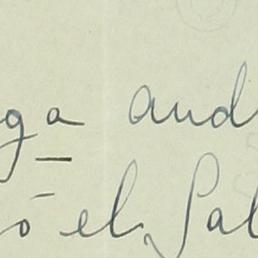 ga aud
ó el Sal